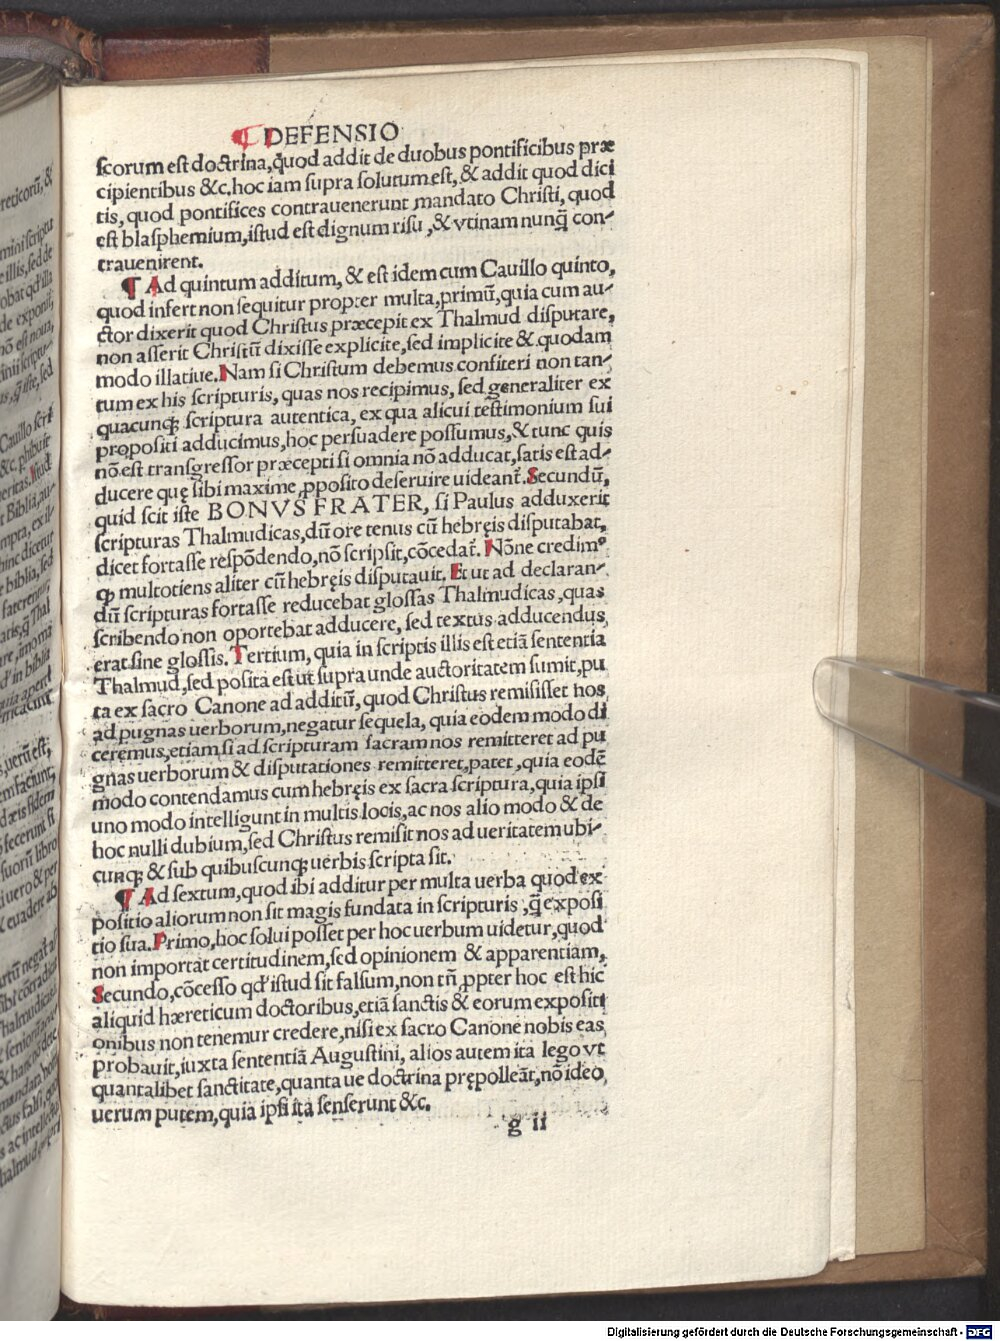 ¶ DEFENSIO
scorum est doctrina, quod addit de duobus pontificibus præ
cipientibus &c. hoc iam supra solutum est, & addit quod dici
tis, quod pontifices contrauenerunt mandato Christi, quod
est blasphemium, istud est dignum risu, & vtinam nunq̃ con-
trauenirent.
¶ Ad quintum additum, & est idem cum Cauillo quinto,
quod infert non sequitur propter multa, primũ, quia cum au-
ctor dixerit quod Christus præcepit ex Thalmud disputare,
non asserit Christũ dixisse explicite, sed implicite & quodam
modo illatiue. Nam si Christum debemus confiteri non tan-
tum ex his scripturis, quas nos recipimus, sed generaliter ex
quacunq; scriptura autentica, ex qua alicui testimonium sui
propositi adducimus, hoc persuadere possumus, & tunc quis
nõ est transgressor præcepti si omnia nõ adducat, satis est ad-
ducere quę sibi maxime ꝓposito deseruire uideant̃. Secundũ,
quid scit iste BONVS FRATER, si Paulus adduxerit
scripturas Thalmudicas, dũ ore tenus cũ hebręis disputabat,
dicet fortasse respõdendo, nõ scripsit, cõcedat̃. Nõne credimꝰ
ꝙ multotiens aliter cũ hebręis disputauit. Et ut ad declaran-
dũ scripturas fortasse reducebat glossas Thalmudicas, quas
scribendo non oportebat adducere, sed textus adducendus
erat sine glossis. Tertium, quia in scriptis illis est etiã sententia
Thalmud, sed posita est ut supra unde auctoritatem sumit, pu
ta ex sacro Canone ad additũ, quod Christus remisisset nos
ad pugnas uerborum, negatur sequela, quia eodem modo di
ceremus, etiam si ad scripturam sacram nos remitteret ad pu
gnas uerborum & disputationes remitteret, patet, quia eodẽ
modo contendamus cum hebręis ex sacra scriptura, quia ipsi
uno modo intelligunt in multis locis, ac nos alio modo & de
hoc nulli dubium, sed Christus remisit nos ad ueritatem ubi-
cunq; & sub quibuscunq; uerbis scripta sit.
¶ Ad sextum, quod ibi additur per multa uerba quod ex
positio aliorum non sit magis fundata in scripturis, q̃ exposi
tio sua. Primo, hoc solui posset per hoc uerbum uidetur, quod
non importat certitudinem, sed opinionem & apparentiam,
Secundo, cõcesso qd' istud sit falsum, non tñ ꝓpter hoc est hic
aliquid hæreticum doctoribus, etiã sanctis & eorum expositi
onibus non tenemur credere, nisi ex sacro Canone nobis eas
probauit, iuxta sententiã Augustini, alios autem ita lego vt
quantalibet sanctitate, quanta ue doctrina prępolleãt, nõ ideo
uerum putem, quia ipsi ita senserunt &c.
g ii
Digitalisierung gefördert durch die Deutsche Forschungsgemeinschaft - DFG